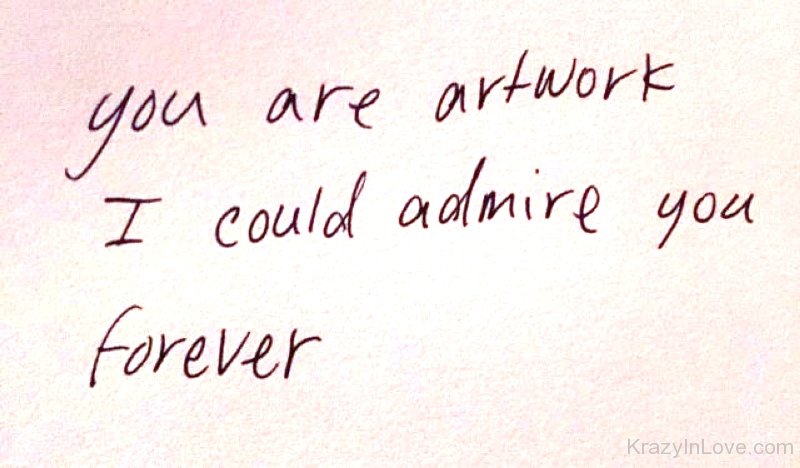 you are artwork
I could admire you
forever
KrazyInLove.com